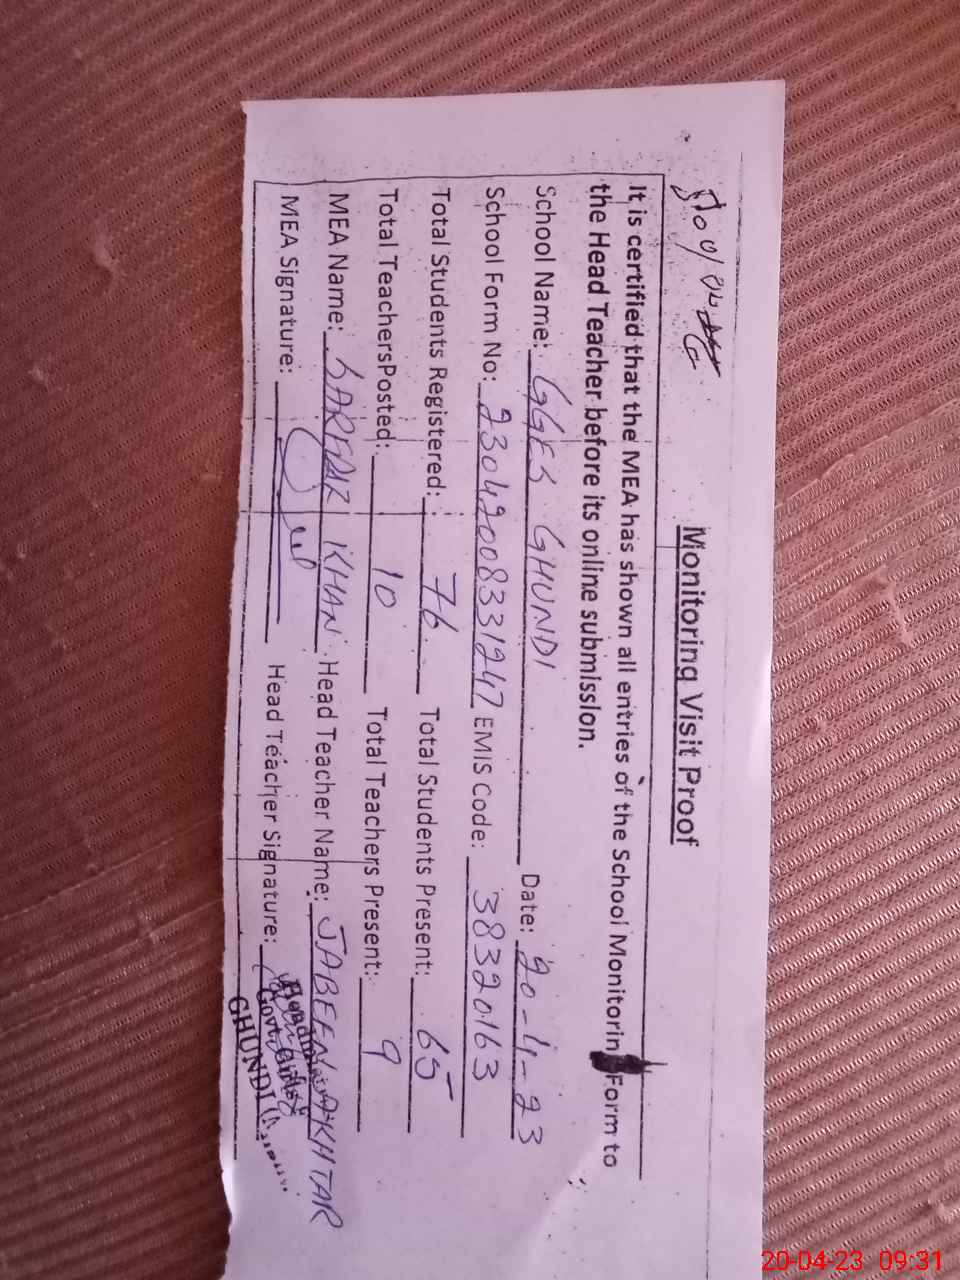 Monitoring Visit Proof
It is certified that the MEA has shown all entries of the School Monitorin Form to
the Head Teacher before its online submission.
School Name: GGES GHUNDI Date: 20-4-23
School Form No: 23042008331247 EMIS Code: 38320163
Total Students Registered: 76 Total Students Present: 65
Total TeachersPosted: 10 Total Teachers Present: 9
MEA Name: SARFRAZ KHAN Head Teacher Name: JABEEN AKHTAR
MEA Signature: Head Teacher Signature:
Govt. Girls
GHUNDI
20-04-23 09:31